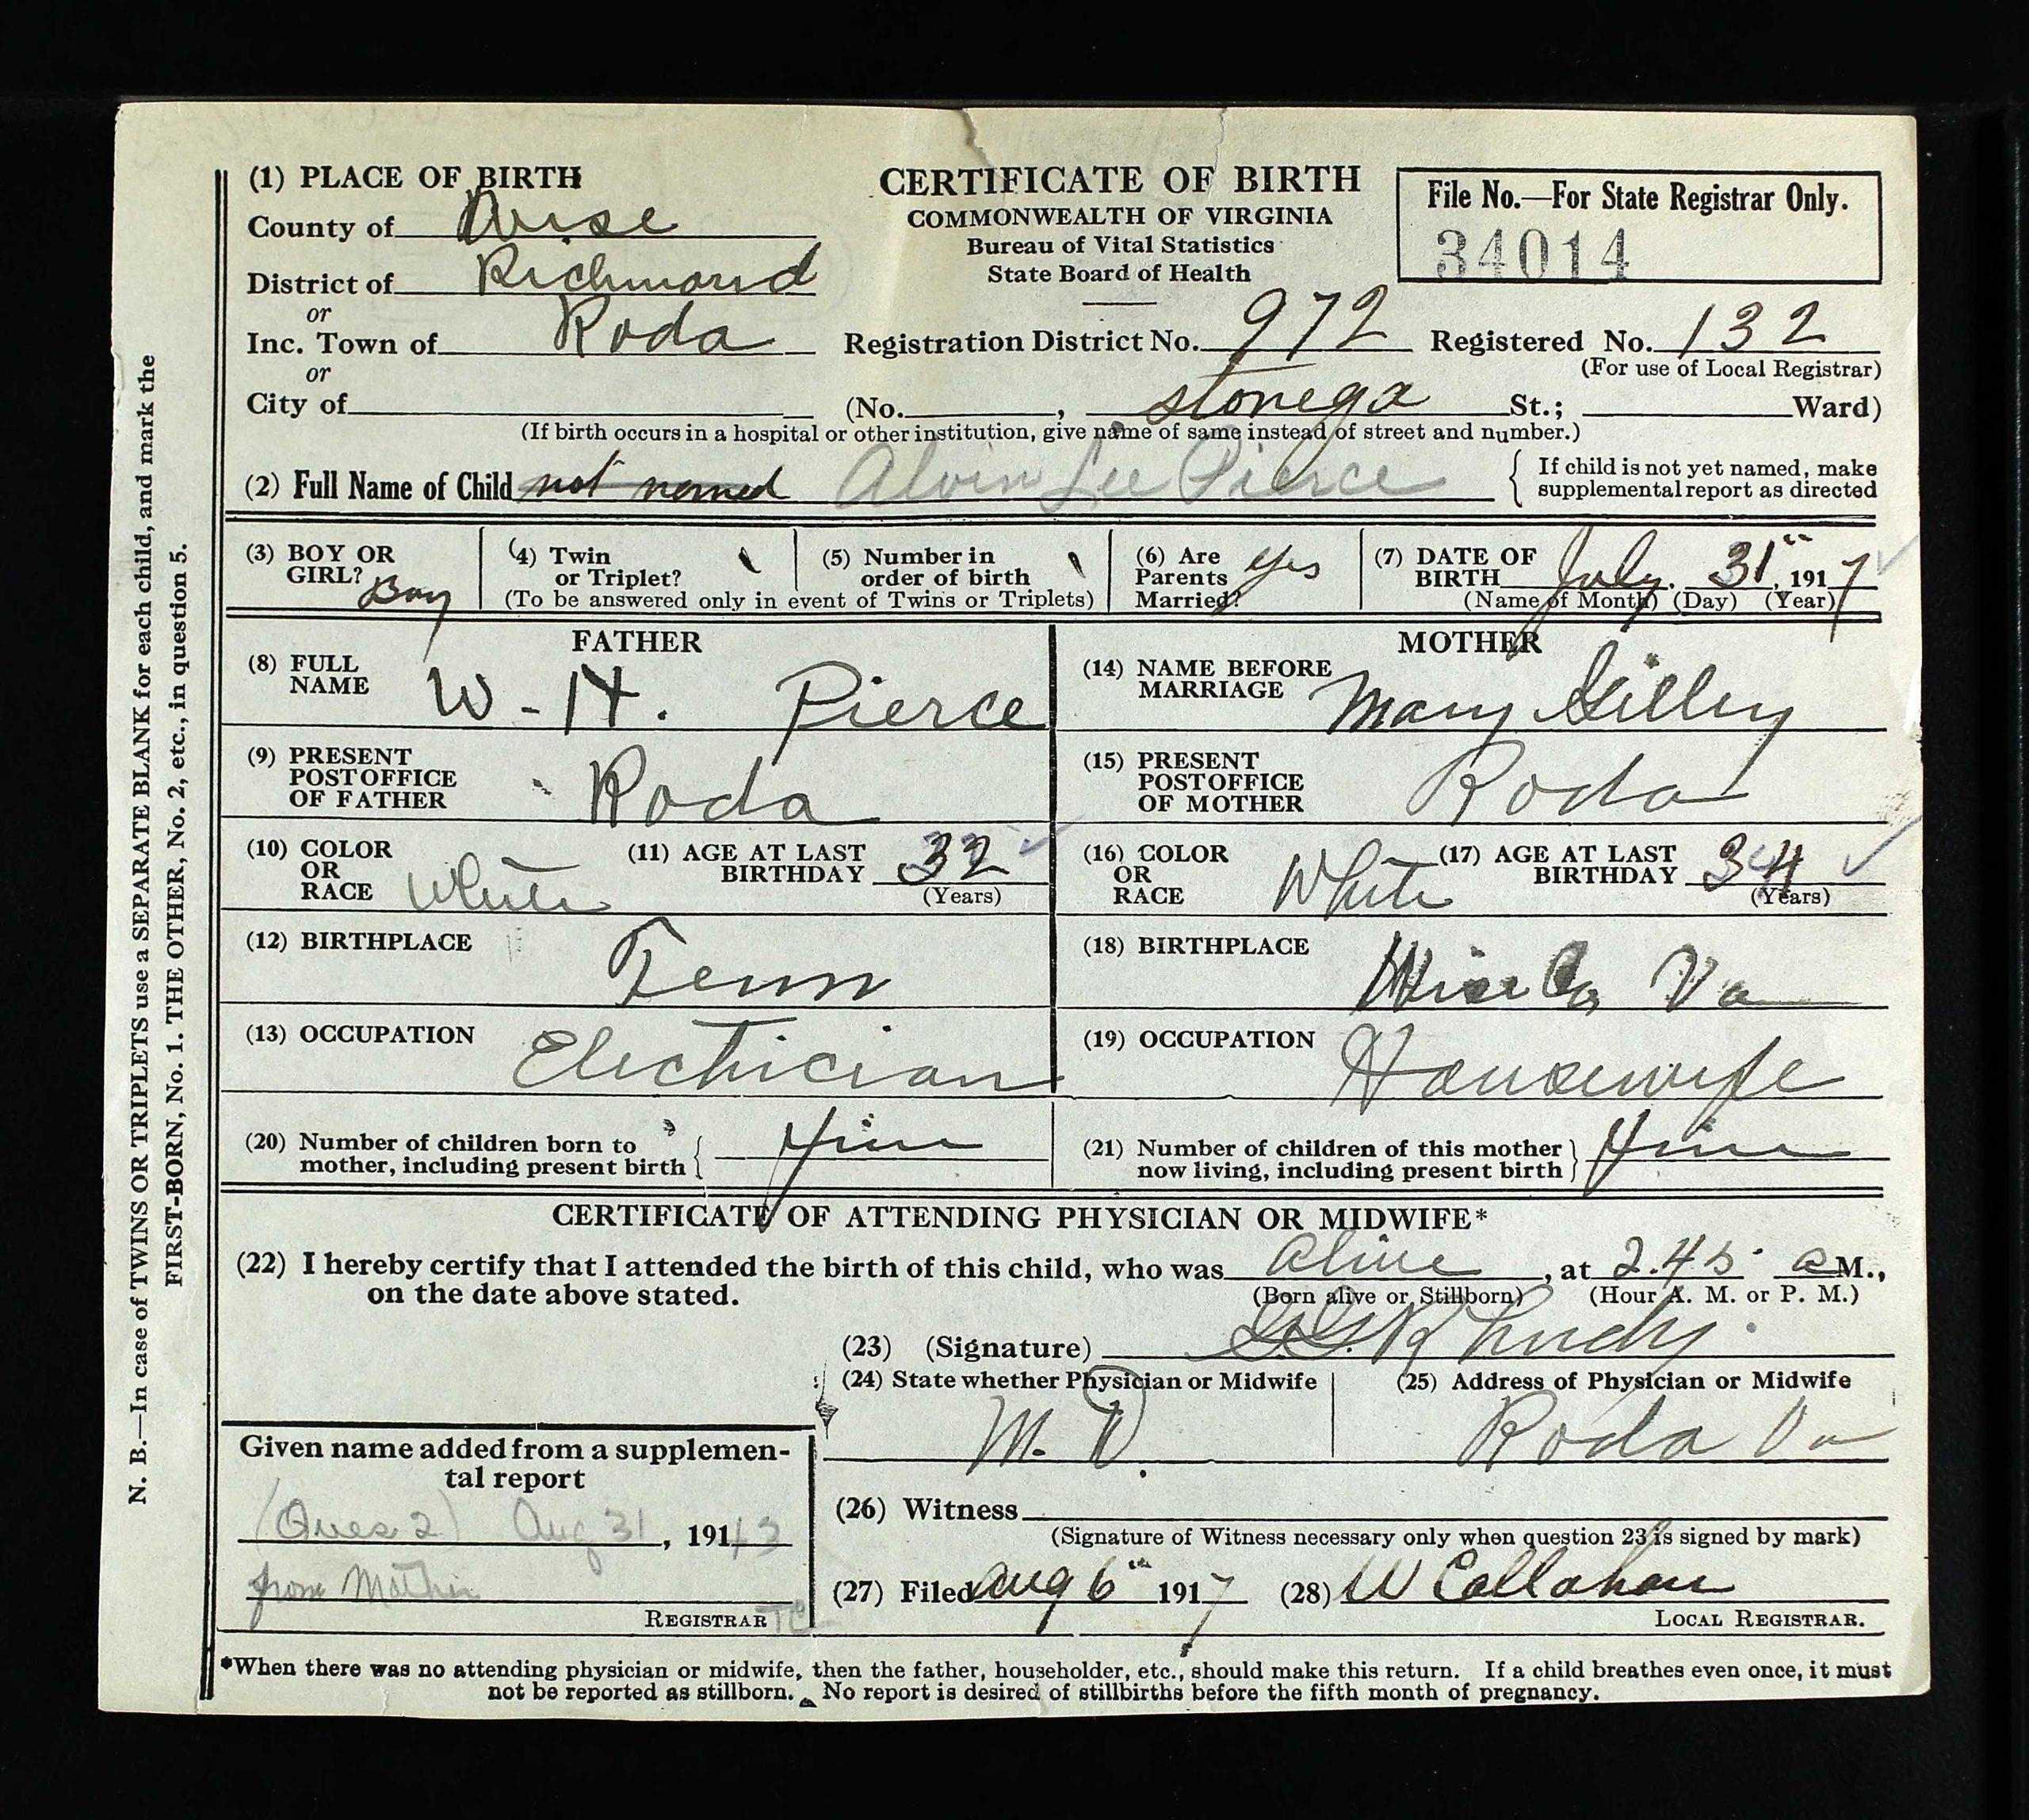 (1) PLACE OF BIRTH
County of Wise
District of Richmond
or
Inc. Town of Roda
or
City of
CERTIFICATE OF BIRTH
COMMONWEALTH OF VIRGINIA
Bureau of Vital Statistics
State Board of Health
File No.—For State Registrar Only.
34014
Registration District No. 972 Registered No. 132
(For use of Local Registrar)
(No. , Stonega St.; Ward)
(If birth occurs in a hospital or other institution, give name of same instead of street and number.)
(2) Full Name of Child not named Alvin Lee Pierce
{ If child is not yet named, make
supplemental report as directed
(3) BOY OR
GIRL? Boy
(4) Twin
or Triplet?
(5) Number in
order of birth
(To be answered only in event of Twins or Triplets)
(6) Are
Parents
Married? yes
(7) DATE OF
BIRTH July. 31", 1917
(Name of Month) (Day) (Year)
FATHER
(8) FULL
NAME W-H. Pierce
(9) PRESENT
POSTOFFICE
OF FATHER Roda
(10) COLOR
OR
RACE White
(11) AGE AT LAST
BIRTHDAY 32
(Years)
(12) BIRTHPLACE Tenn
(13) OCCUPATION Electrician
(20) Number of children born to
mother, including present birth {
MOTHER
(14) NAME BEFORE
MARRIAGE Mary Gilley
(15) PRESENT
POSTOFFICE
OF MOTHER Roda
(16) COLOR
OR
RACE White
(17) AGE AT LAST
BIRTHDAY 34
(Years)
(18) BIRTHPLACE Wise Co Va
(19) OCCUPATION Housewife
(21) Number of children of this mother
now living, including present birth }
CERTIFICATE OF ATTENDING PHYSICIAN OR MIDWIFE*
(22) I hereby certify that I attended the birth of this child, who was alive, at 2.45 a M.,
on the date above stated. (Born alive or Stillborn) (Hour A. M. or P. M.)
(23) (Signature)
(24) State whether Physician or Midwife
M. D.
(25) Address of Physician or Midwife
Roda Va
Given name added from a supplemen-
tal report
(Ques 2) Aug 31, 191
from Mother
REGISTRAR
(26) Witness
(Signature of Witness necessary only when question 23 is signed by mark)
(27) Filed Aug 6th 1917 (28) W Callahan
LOCAL REGISTRAR.
*When there was no attending physician or midwife, then the father, householder, etc., should make this return. If a child breathes even once, it must
not be reported as stillborn. No report is desired of stillbirths before the fifth month of pregnancy.
N. B.—In case of TWINS OR TRIPLETS use a SEPARATE BLANK for each child, and mark the
FIRST-BORN, No. 1. THE OTHER, No. 2, etc., in question 5.